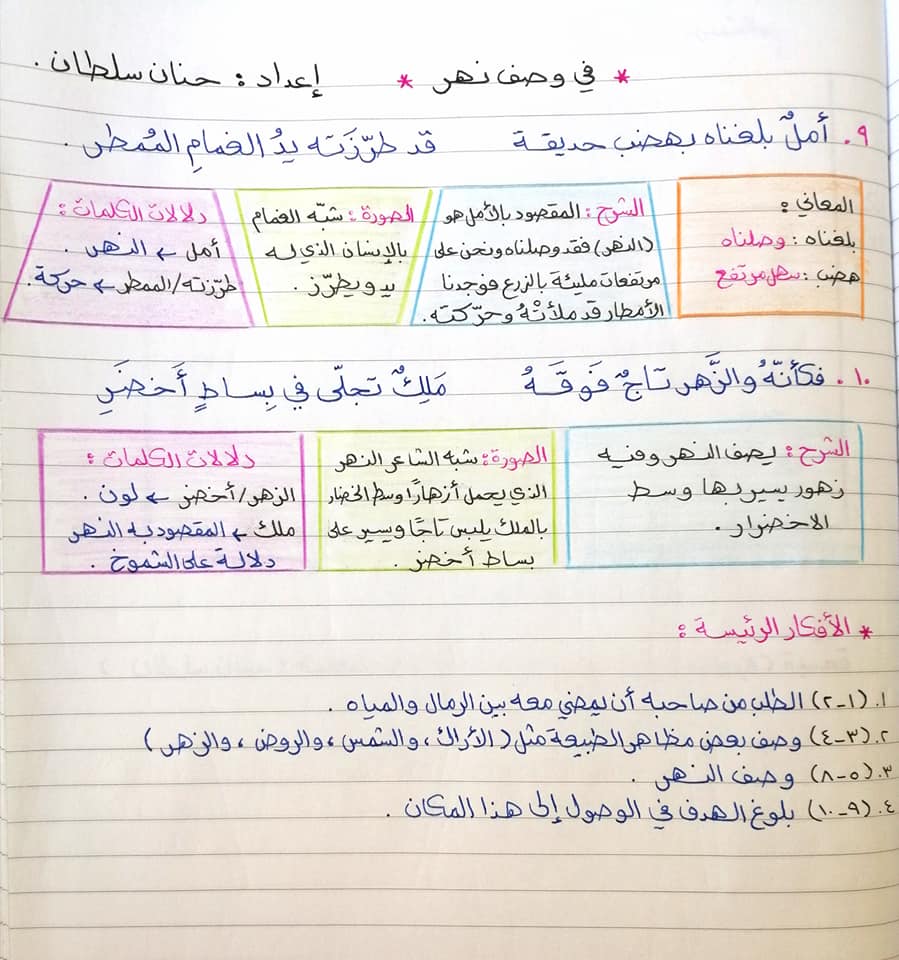 * في وصف نهر * إعداد : حنان سلطان .
٩. أملٌ بلغناه بهضب حديقة قد طرّزَته يدُ الغمامِ المُمطر .
المعاني :
بلغناه : وصلناه
هضب : سهل مرتفع
الشرح : المقصود بالأمل هو
(النهر) فقد وصلناه ونحن على
مرتفعات مليئة بالزرع فوجدنا
الأمطار قد ملأتْهُ وحرّكته .
الصورة : شبّه الغمام
بالإنسان الذي له
يد ويطرّز .
دلالات الكلمات :
أمل ← النهر .
طرّزته/الممطر ← حركة .
١٠. فكأنّهُ والزَّهر تاجٌ فَوقَهُ مَلِكٌ تجلّى في بِساطٍ أَخضَرِ
الشرح : يصف النهر وفيه
زهور يسير بها وسط
الاخضرار .
الصورة : شبه الشاعر النهر
الذي يحمل أزهارًا وسط الخضار
بالملك يلبس تاجًا ويسير على
بساط أخضر .
دلالات الكلمات :
الزهر/أخضر ← لون .
ملك ← المقصود به النهر
دلالة على الشموخ .
* الأفكار الرئيسة :
١. (١-٢) الطلب من صاحبه أن يمضي معه بين الرمال والمياه .
٢. (٣-٤) وصف بعض مظاهر الطبيعة مثل ( الأراك ، والشمس ، والروض ، والزهر )
٣. (٥-٨) وصف النهر .
٤. (٩-١٠) بلوغ الهدف في الوصول إلى هذا المكان .